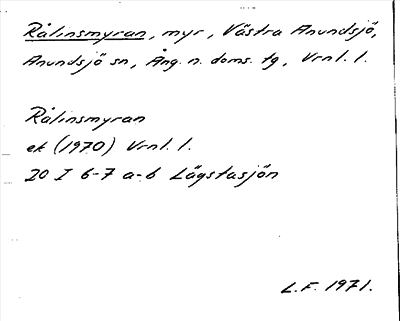 Rålinsmyran, myr, Västra Anundsjö,
Anundsjö sn, Ång. n. doms. tg, Vrnl. l.
Rålinsmyran
ek (1970) Vrnl. l.
20 I 6-7 a-b Lägstasjön
L.F. 1971.